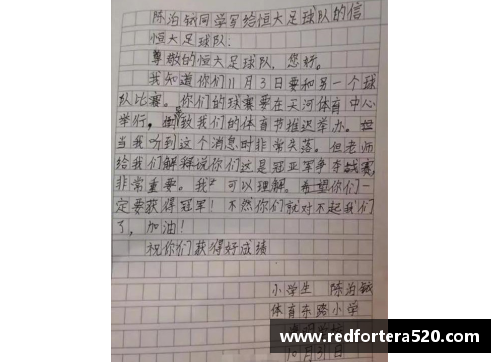 陈泊钺同学写给恒大足球队的信
恒大足球队:
尊敬的恒大足球队,您好。
我知道你们11月3日要和另一个球
队比赛。你们的球赛要在天河体育中心
举行,导致我们的体育节推迟举办。
当我听到这个消息时非常失落。但老师
给我们解释说你们这是冠亚军争夺战赛,
非常重要。我 可以理解。希望你们一
定要获得冠军!不然你们就对不起我们
了,加油!
祝你们获得好成绩
小学生 陈泊钺
体育东路小学
10月31日
www.redfortera520.com